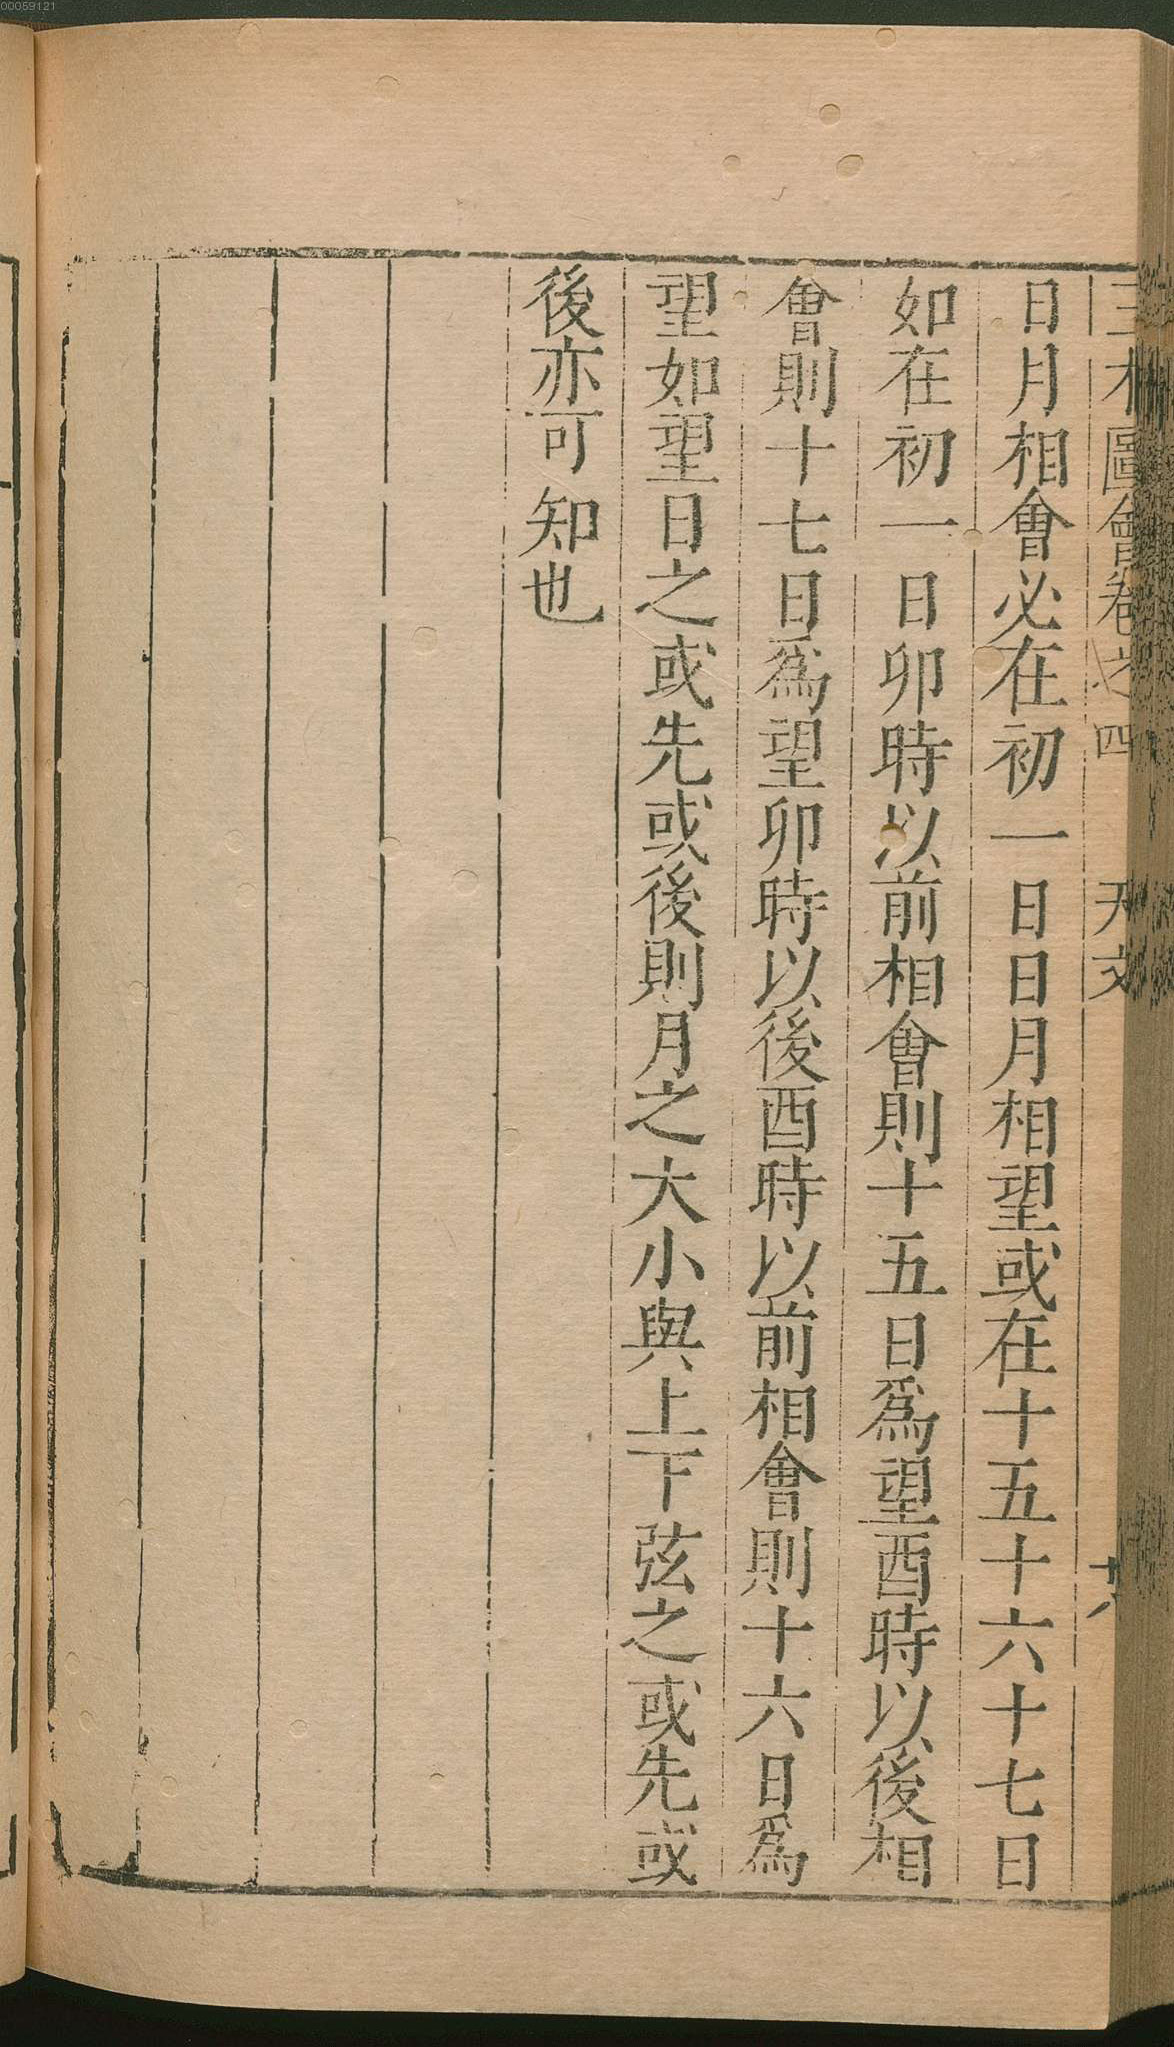 00059121
三才圖會卷之四 天文 十六
日月相會必在初一日日月相望或在十五十六十七日
如在初一日卯時以前相會則十五日爲望酉時以後相
會則十七日爲望卯時以後酉時以前相會則十六日爲
望如望日之或先或後則月之大小與上下弦之或先或
後亦可知也